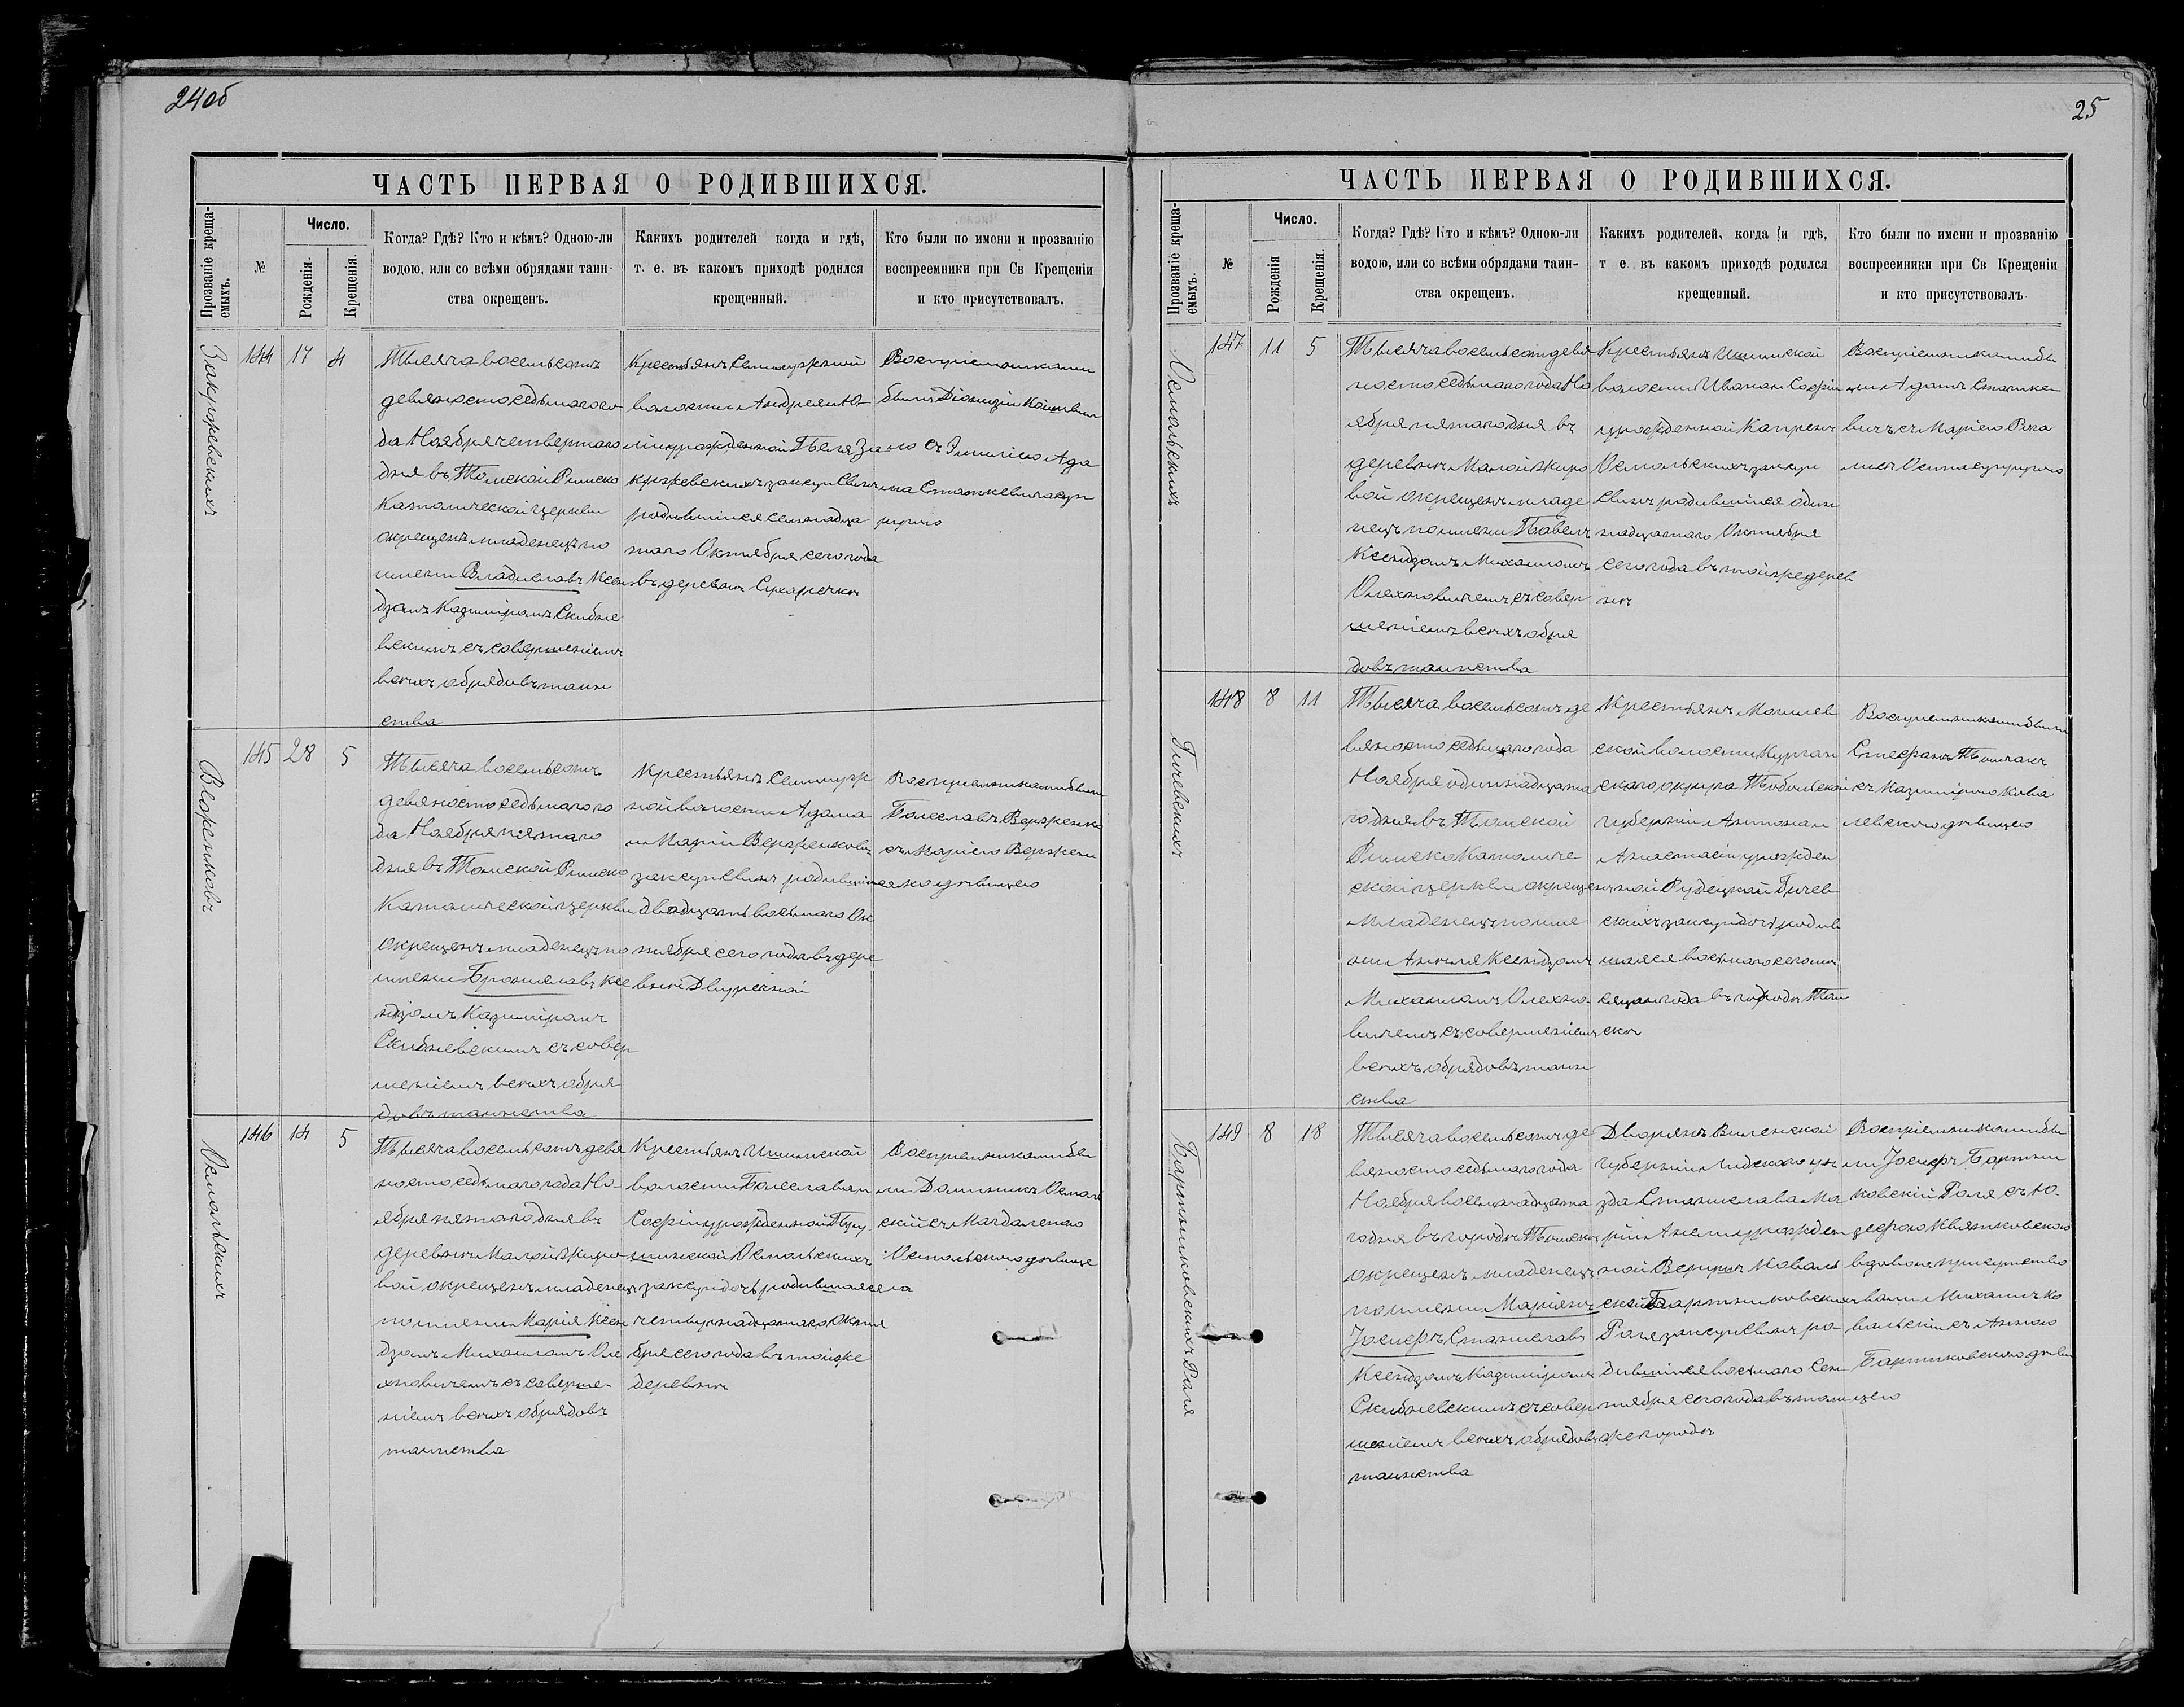 24об
ЧАСТЬ ПЕРВАЯ О РОДИВШИХСЯ.
Прозваніе креща-
емыхъ.
№
Число.
Рожденія.
Крещенія.
Когда? Гдѣ? Кто и кѣмъ? Одною-ли
водою, или со всѣми обрядами таин-
ства окрещенъ.
Какихъ родителей когда и гдѣ,
т. е. въ какомъ приходѣ родился
крещенный.
Кто были по имени и прозванію
воспреемники при Св Крещеніи
и кто присутствовалъ.
Закржевскихъ
144 17 4
Тысяча восемьсотъ
девяносто седьмаго го
да Ноября четвертаго
дня въ Томской Римско
Католической церкви
окрещенъ младенецъ по
имени Владиславъ Ксен
дзомъ Казиміромъ Скибнe
вскимъ съ совершеніемъ
всѣхъ обрядовъ таин
ства
Крестьянъ Семилужной
волости Андрея и Ю-
ліи урожденной
кржевскихъ зак сулъ сынъ
родившійся семнадца
таго Октября сего года
въ деревнѣ Сухарѣчкѣ
Воспріемниками
были Діонизій
съ Эмиліею Ада
ма Станкевича суп
ругою
145 28 5
Тысяча восемьсотъ
девяносто седьмаго го
да Ноября пятаго
дня въ Томской Римско
Католической церкви
окрещенъ младенецъ по
имени Брониславъ Ксе
ндзомъ Казиміромъ
Скибневскимъ съ совер
шеніемъ всѣхъ обря
довъ таинства
Крестьянъ Семилуж
ной волости Адама
и Маріи Верженковъ
зак суп сынъ родившійся
двадцать восьмаго Ок
тября сего года въ дере
внѣ Двурѣчной
Воспріемниками были
Болеславъ Верженко
съ Маріею Вержен
ко дѣвицею
Осмольскихъ
146 14 5
Тысяча восемьсотъ девя
носто седьмаго года Но-
ября пятаго дня въ
деревнѣ Малой Жиро
вой окрещенъ младенецъ
по имени Марія Ксен
дзомъ Михаиломъ Оле
хновичемъ съ соверше-
ніемъ всѣхъ обрядовъ
таинства
Крестьянъ Ишимской
волости Болеслава и
Софіи урожденной
Осмольскихъ
зак суп дочь родившаяся
четырнадцатаго Октя
бря сего года въ той же
деревнѣ
Воспріемниками бы
ли Доминикъ Осмоль
скій съ Магдаленою
Осмольскою дѣвице
ю
25
ЧАСТЬ ПЕРВАЯ О РОДИВШИХСЯ.
Прозваніе креща-
емыхъ.
№
Число.
Рожденія
Крещенія.
Когда? Гдѣ? Кто и кѣмъ? Одною-ли
водою, или со всѣми обрядами таин-
ства окрещенъ.
Какихъ родителей, когда и гдѣ,
т е. въ какомъ приходѣ родился
крещенный.
Кто были по имени и прозванію
воспреемники при Св Крещеніи
и кто присутствовалъ.
Осмольскихъ
147 11 5
Тысяча восемьсот девя
носто седьмаго года Но
ября пятаго дня въ
деревнѣ Малой Жиро
вой окрещенъ младе
нецъ по имени Павелъ
Ксендзомъ Михаиломъ
Олехновичемъ съ совер
шеніемъ всѣхъ обря
довъ таинства
Крестьянъ Ишимской
волости Ивана и Софіи
урожденной
Осмольскихъ зак суп
сынъ родившійся один
надцатаго Октября
сего года въ той же дерев
нѣ
Воспріемниками бы
ли Адамъ Станке
вичъ съ Маріею
Осипа супругою
148 8 11
Тысяча восемьсотъ де
вяносто седьмаго года
Ноября одинадцата
го дня въ Томской
Римско Католиче
ской церкви окрещенъ
младенецъ по име
ни Анеля Ксендзомъ
Михаиломъ Олехно-
вичемъ съ совершеніемъ
всѣхъ обрядовъ таин
ства
Крестьянъ Могилев
ской волости Курган
скаго округа Тобольской
губерніи Антона и
Анастасіи урожден
ной Рудецкой Гичев
скихъ зак суп дочь родив
шаяся восьмаго сего мѣ
сяца и года въ городѣ Том
скѣ
Воспріемниками были
Стефанъ
съ Казимірою Кова
левскою дѣвицею
149 8 18
Тысяча восемьсотъ де
вяносто седьмаго года
Ноября восемнадцата
го дня въ городѣ Томскѣ
окрещенъ младенецъ
по имени Маріянъ
Іосифъ Станиславъ
Ксендзомъ Казиміромъ
Скибневскимъ съ совер
шеніемъ всѣхъ обрядовъ
таинства
Дворянъ Виленской
губерніи Лидскаго уѣ
зда Станислава и Ма
ріи Анели урожден
ной
Бартниковскихъ
Роля зак суп сынъ ро-
дившійся восьмаго Сен
тября сего года въ том
же городѣ
Воспріемниками бы
ли Іосифъ Бартни
ковскій Роля съ Ю-
зефою Квятковскою
вдовою присутство
вали Михаилъ Ко
вальскій съ Анною
Бартниковскою дѣви
цею